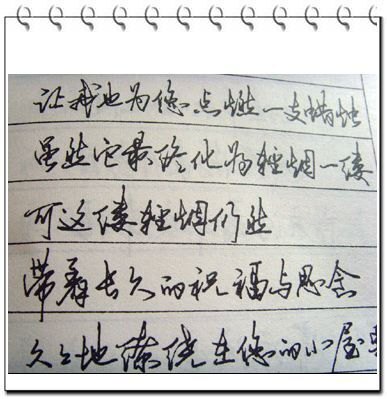 让我也为您点燃一支蜡烛
虽然它最终化为轻烟一缕
可这缕轻烟仍然
带着长久的祝福与思念
久久地缭绕在您的小屋